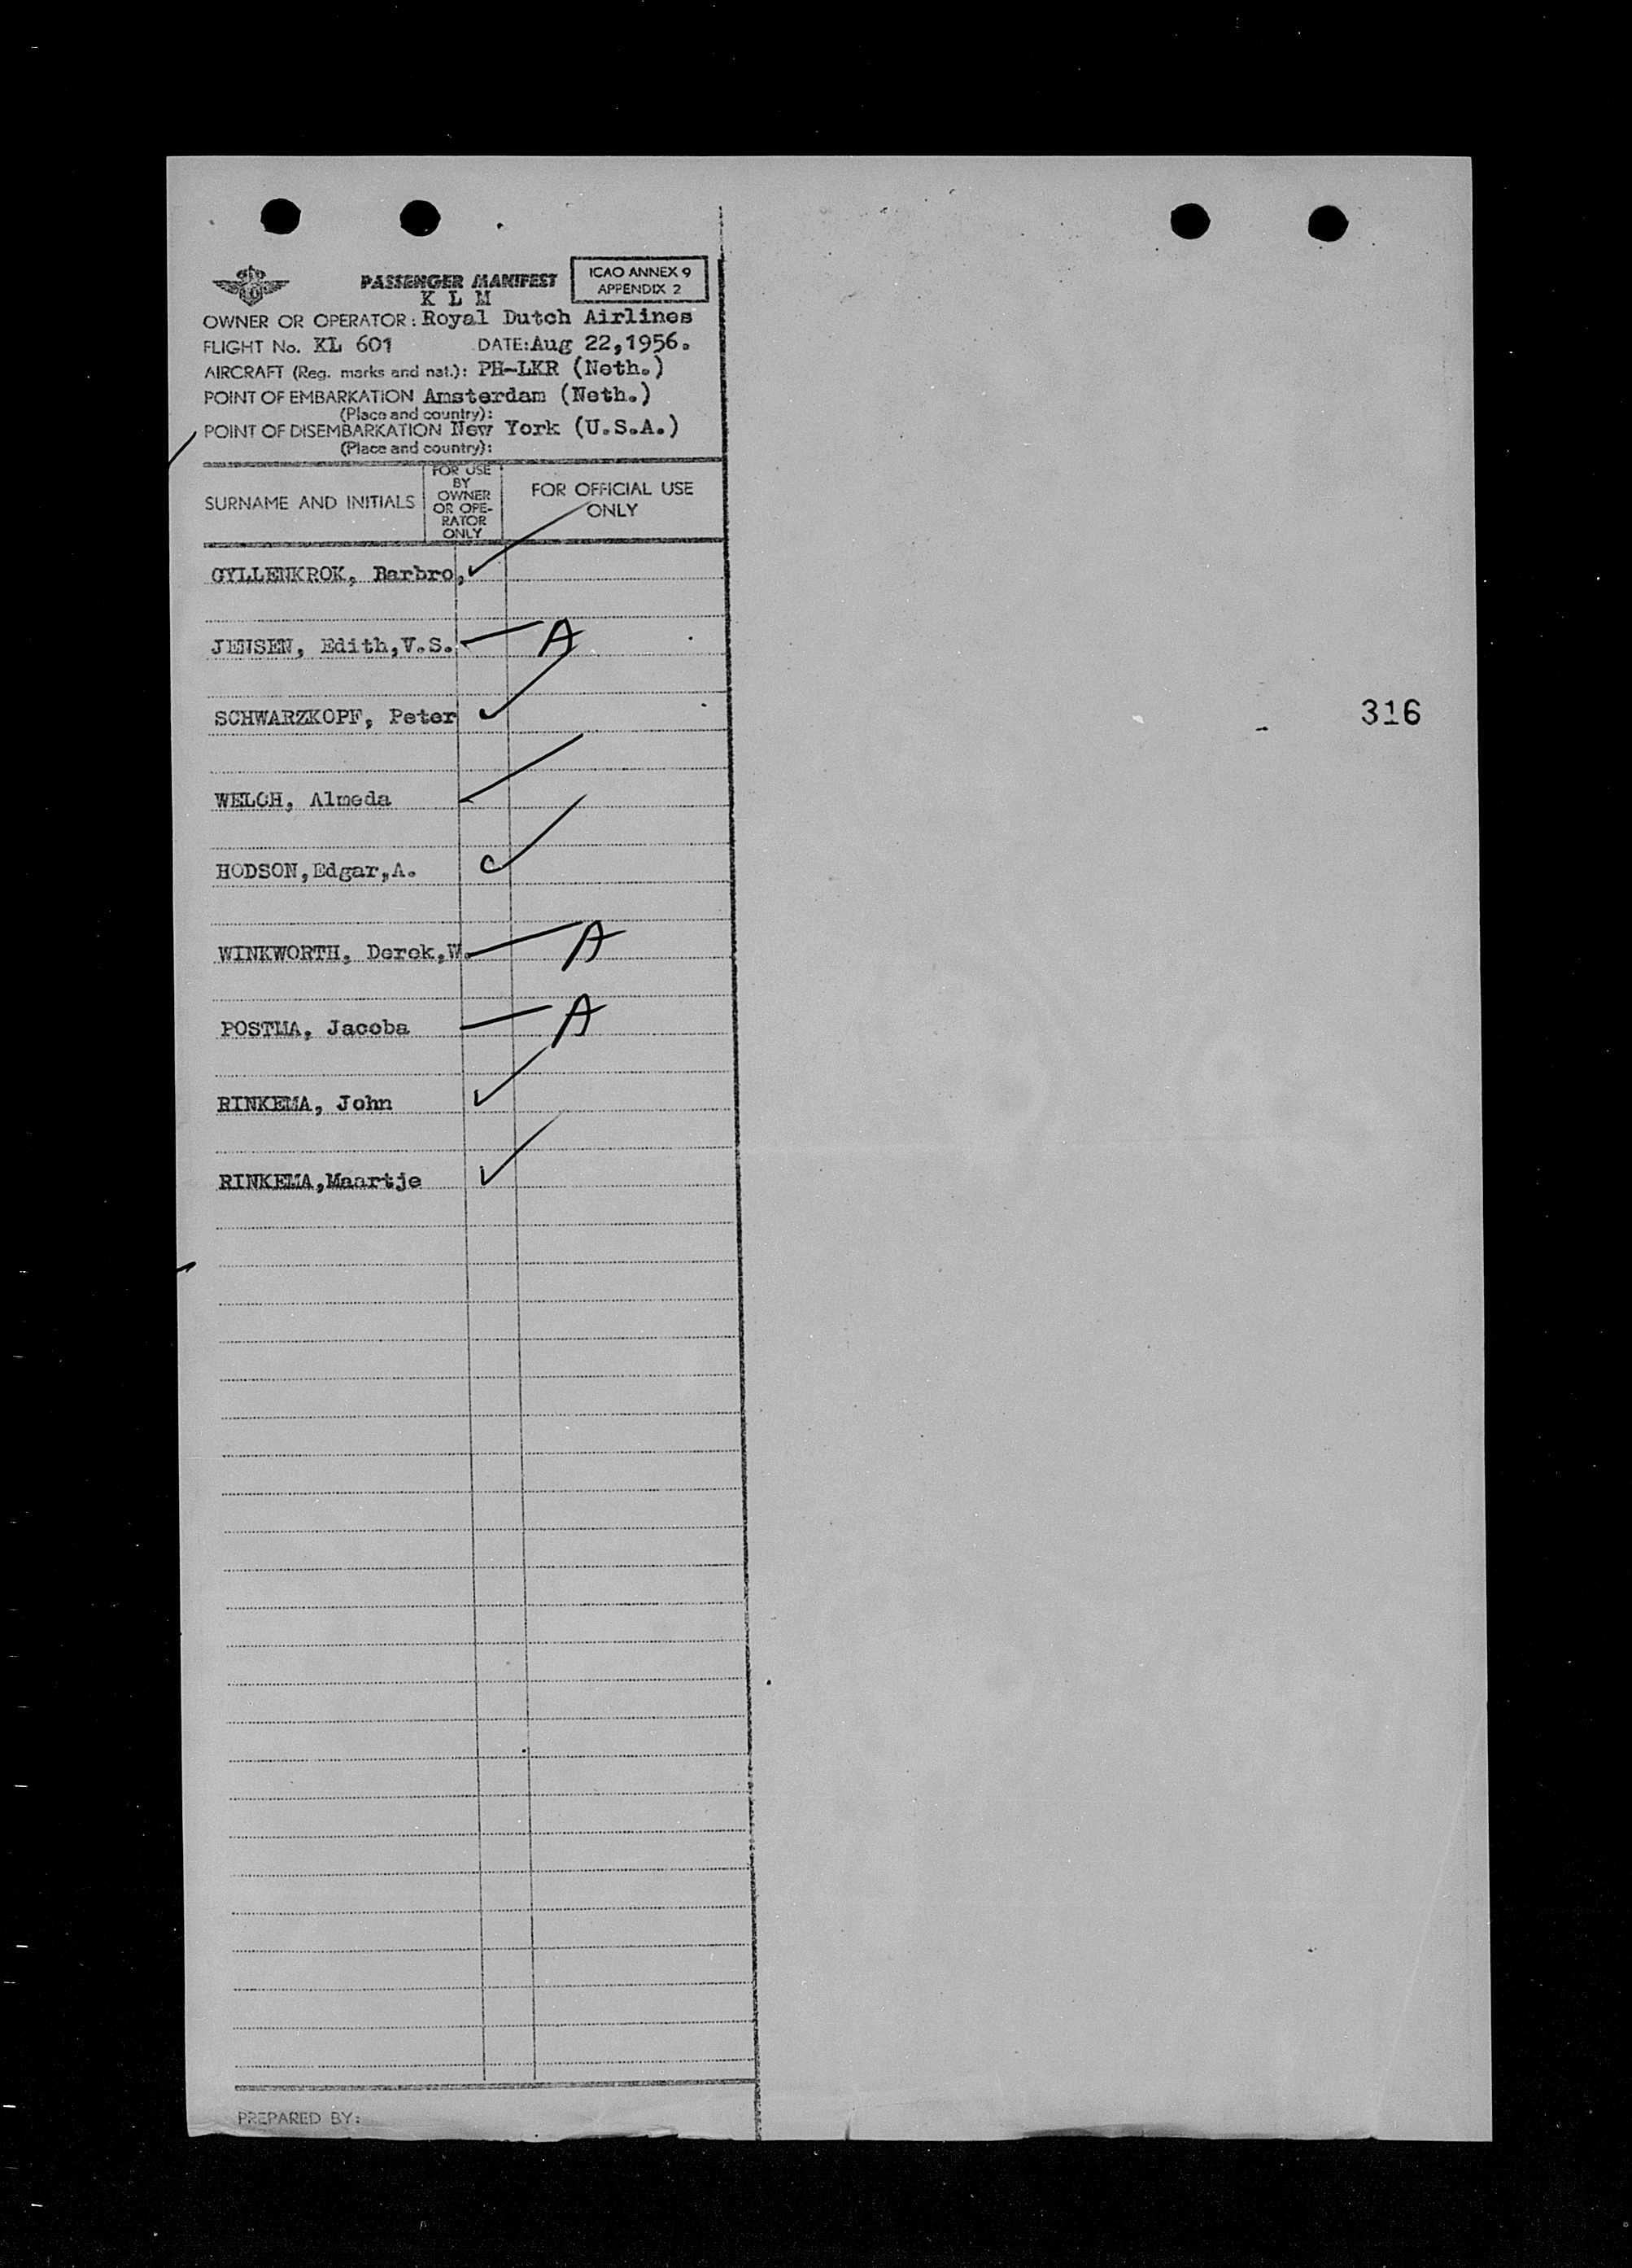 PASSENGER MANIFEST
ICAO ANNEX 9
APPENDIX 2
K L M
OWNER OR OPERATOR: Royal Dutch Airlines
FLIGHT No. KL 601 DATE: Aug 22,1956.
AIRCRAFT (Reg. marks and nat.): PH-LKR (Neth.)
POINT OF EMBARKATION Amsterdam (Neth.)
(Place and country):
POINT OF DISEMBARKATION New York (U.S.A.)
(Place and country):
SURNAME AND INITIALS
FOR USE
BY
OWNER
OR OPE-
RATOR
ONLY
FOR OFFICIAL USE
ONLY
GYLLENKROK, Barbro,
JENSEN, Edith,V.S. A
SCHWARZKOPF, Peter
316
WELCH, Almeda
HODSON,Edgar,A.
WINKWORTH, Derek,W. A
POSTMA, Jacoba A
RINKEMA, John
RINKEMA,Maartje
PREPARED BY: